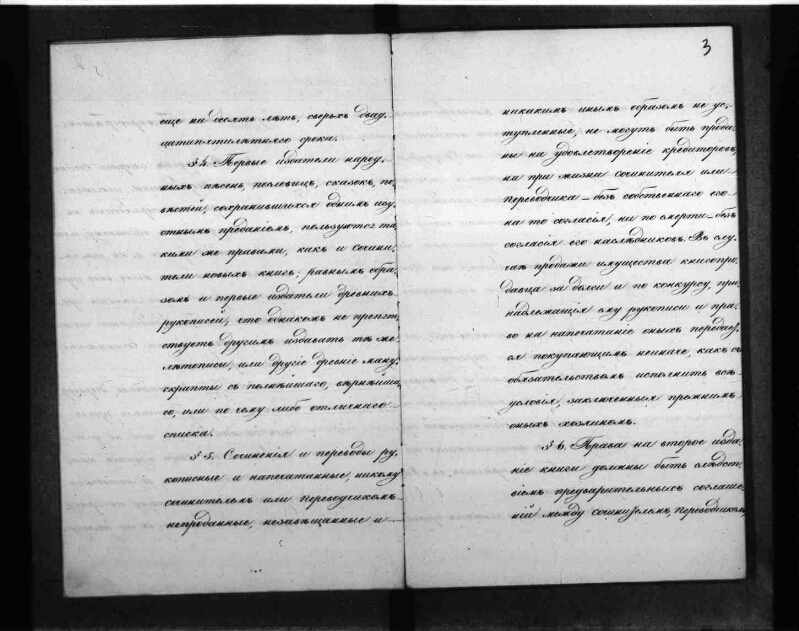 еще на десять лѣтъ, сверхъ двад-
цатипятилѣтняго срока.
§ 4. Первые издатели народ-
ныхъ пѣсень, пословицъ, сказокъ, по-
вѣстей, сохранившихся однимъ изу-
стнымъ преданіемъ, пользуются та-
кими же правами, какъ и сочини-
тели новыхъ книгъ; равнымъ обра-
зомъ и первые издатели древнихъ
рукописей; что однакожъ не препят-
ствуетъ другимъ издавать тѣ же
лѣтописи, или другіе древніе ману-
скрипты съ полнѣйшаго, вѣрнѣйша-
го, или по чему либо отличнаго
списка.
§ 5. Сочиненія и переводы ру-
кописные и напечатанные, никому
сочинителемъ или переводчикомъ
непроданные, незавѣщанные и
3
никакимъ инымъ образомъ не ус-
тупленные, не могутъ быть прода-
ны на удовлетвореніе кредиторовъ,
ни при жизни сочинителя или
переводчика – безъ собственнаго его
на то согласія, ни по смерти – безъ
согласія его наслѣдниковъ. Въ слу-
чаѣ продажи имущества книгопро-
давца за долги и по конкурсу, при-
надлежащія ему рукописи и пра-
во на напечатаніе оныхъ передает-
ся покупающимъ неиначе, какъ съ
обязательствомъ исполнить всѣ
условія, заключенныя прежнимъ
оныхъ хозяиномъ.
§ 6. Права на второе изда-
ніе книги должны быть слѣдст-
віемъ предварительныхъ соглаше-
ній между сочинителемъ, переводчикомъ,